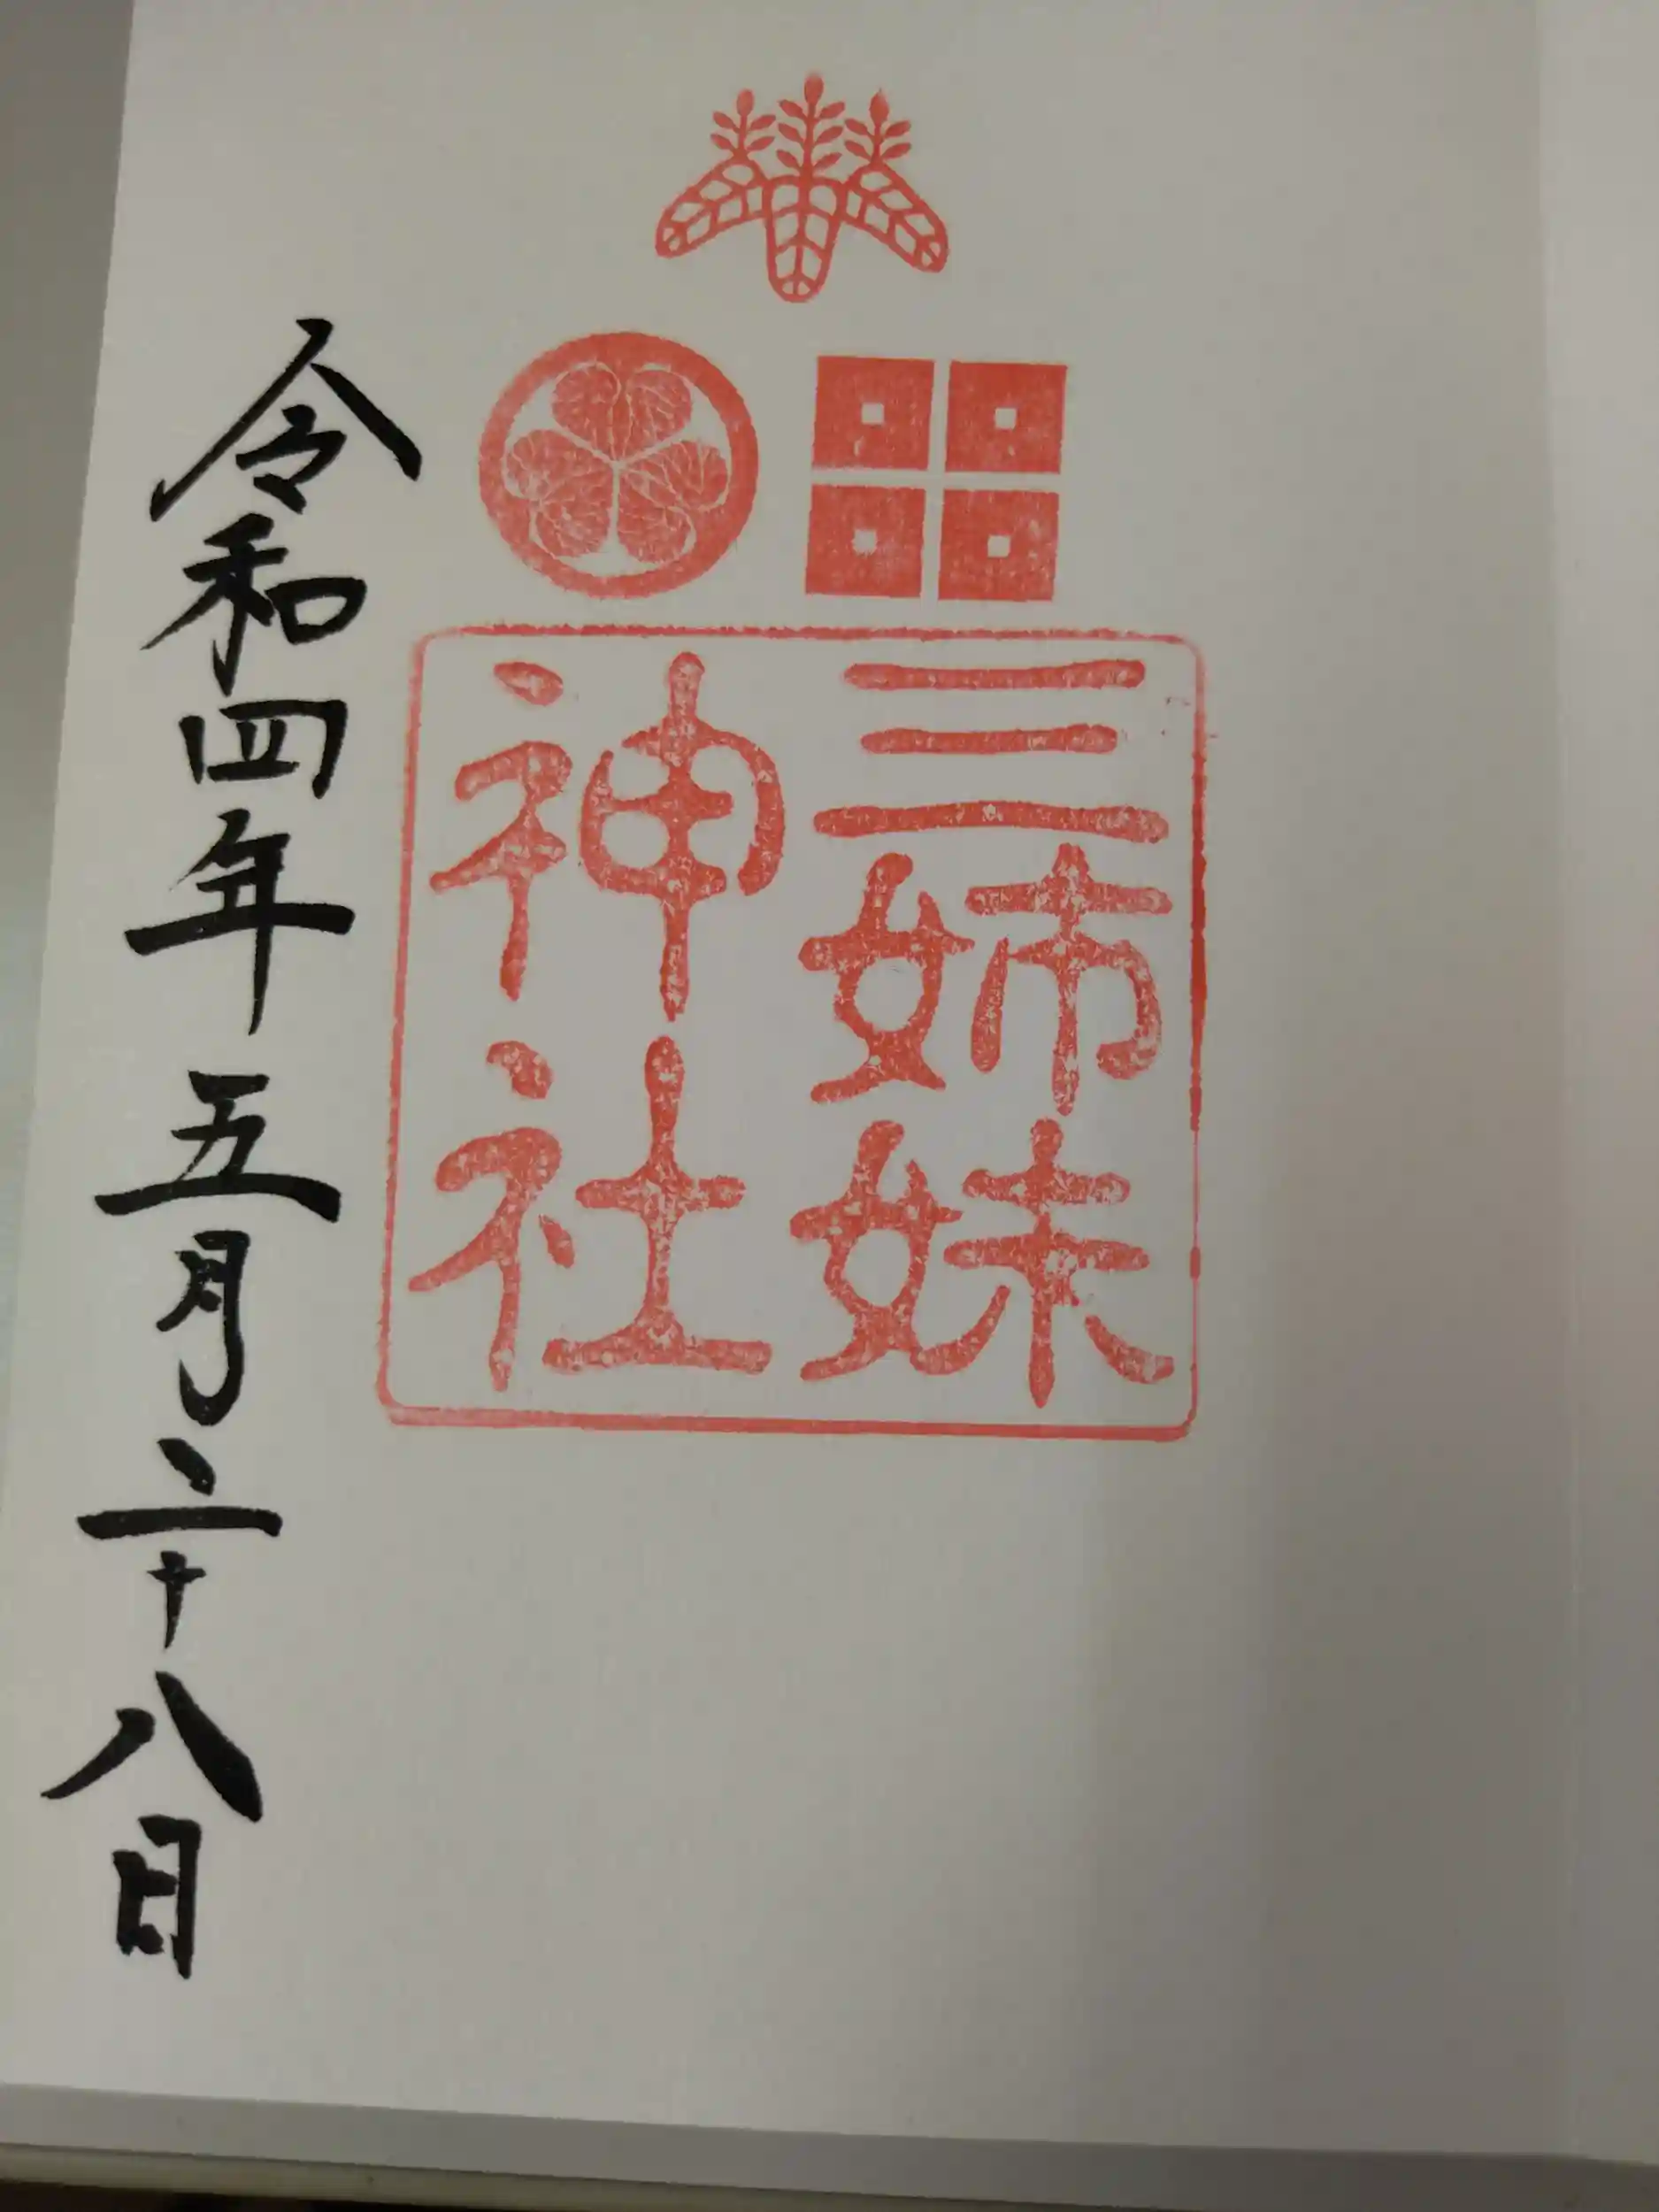 三姉妹
神社
令和四年五月二十八日